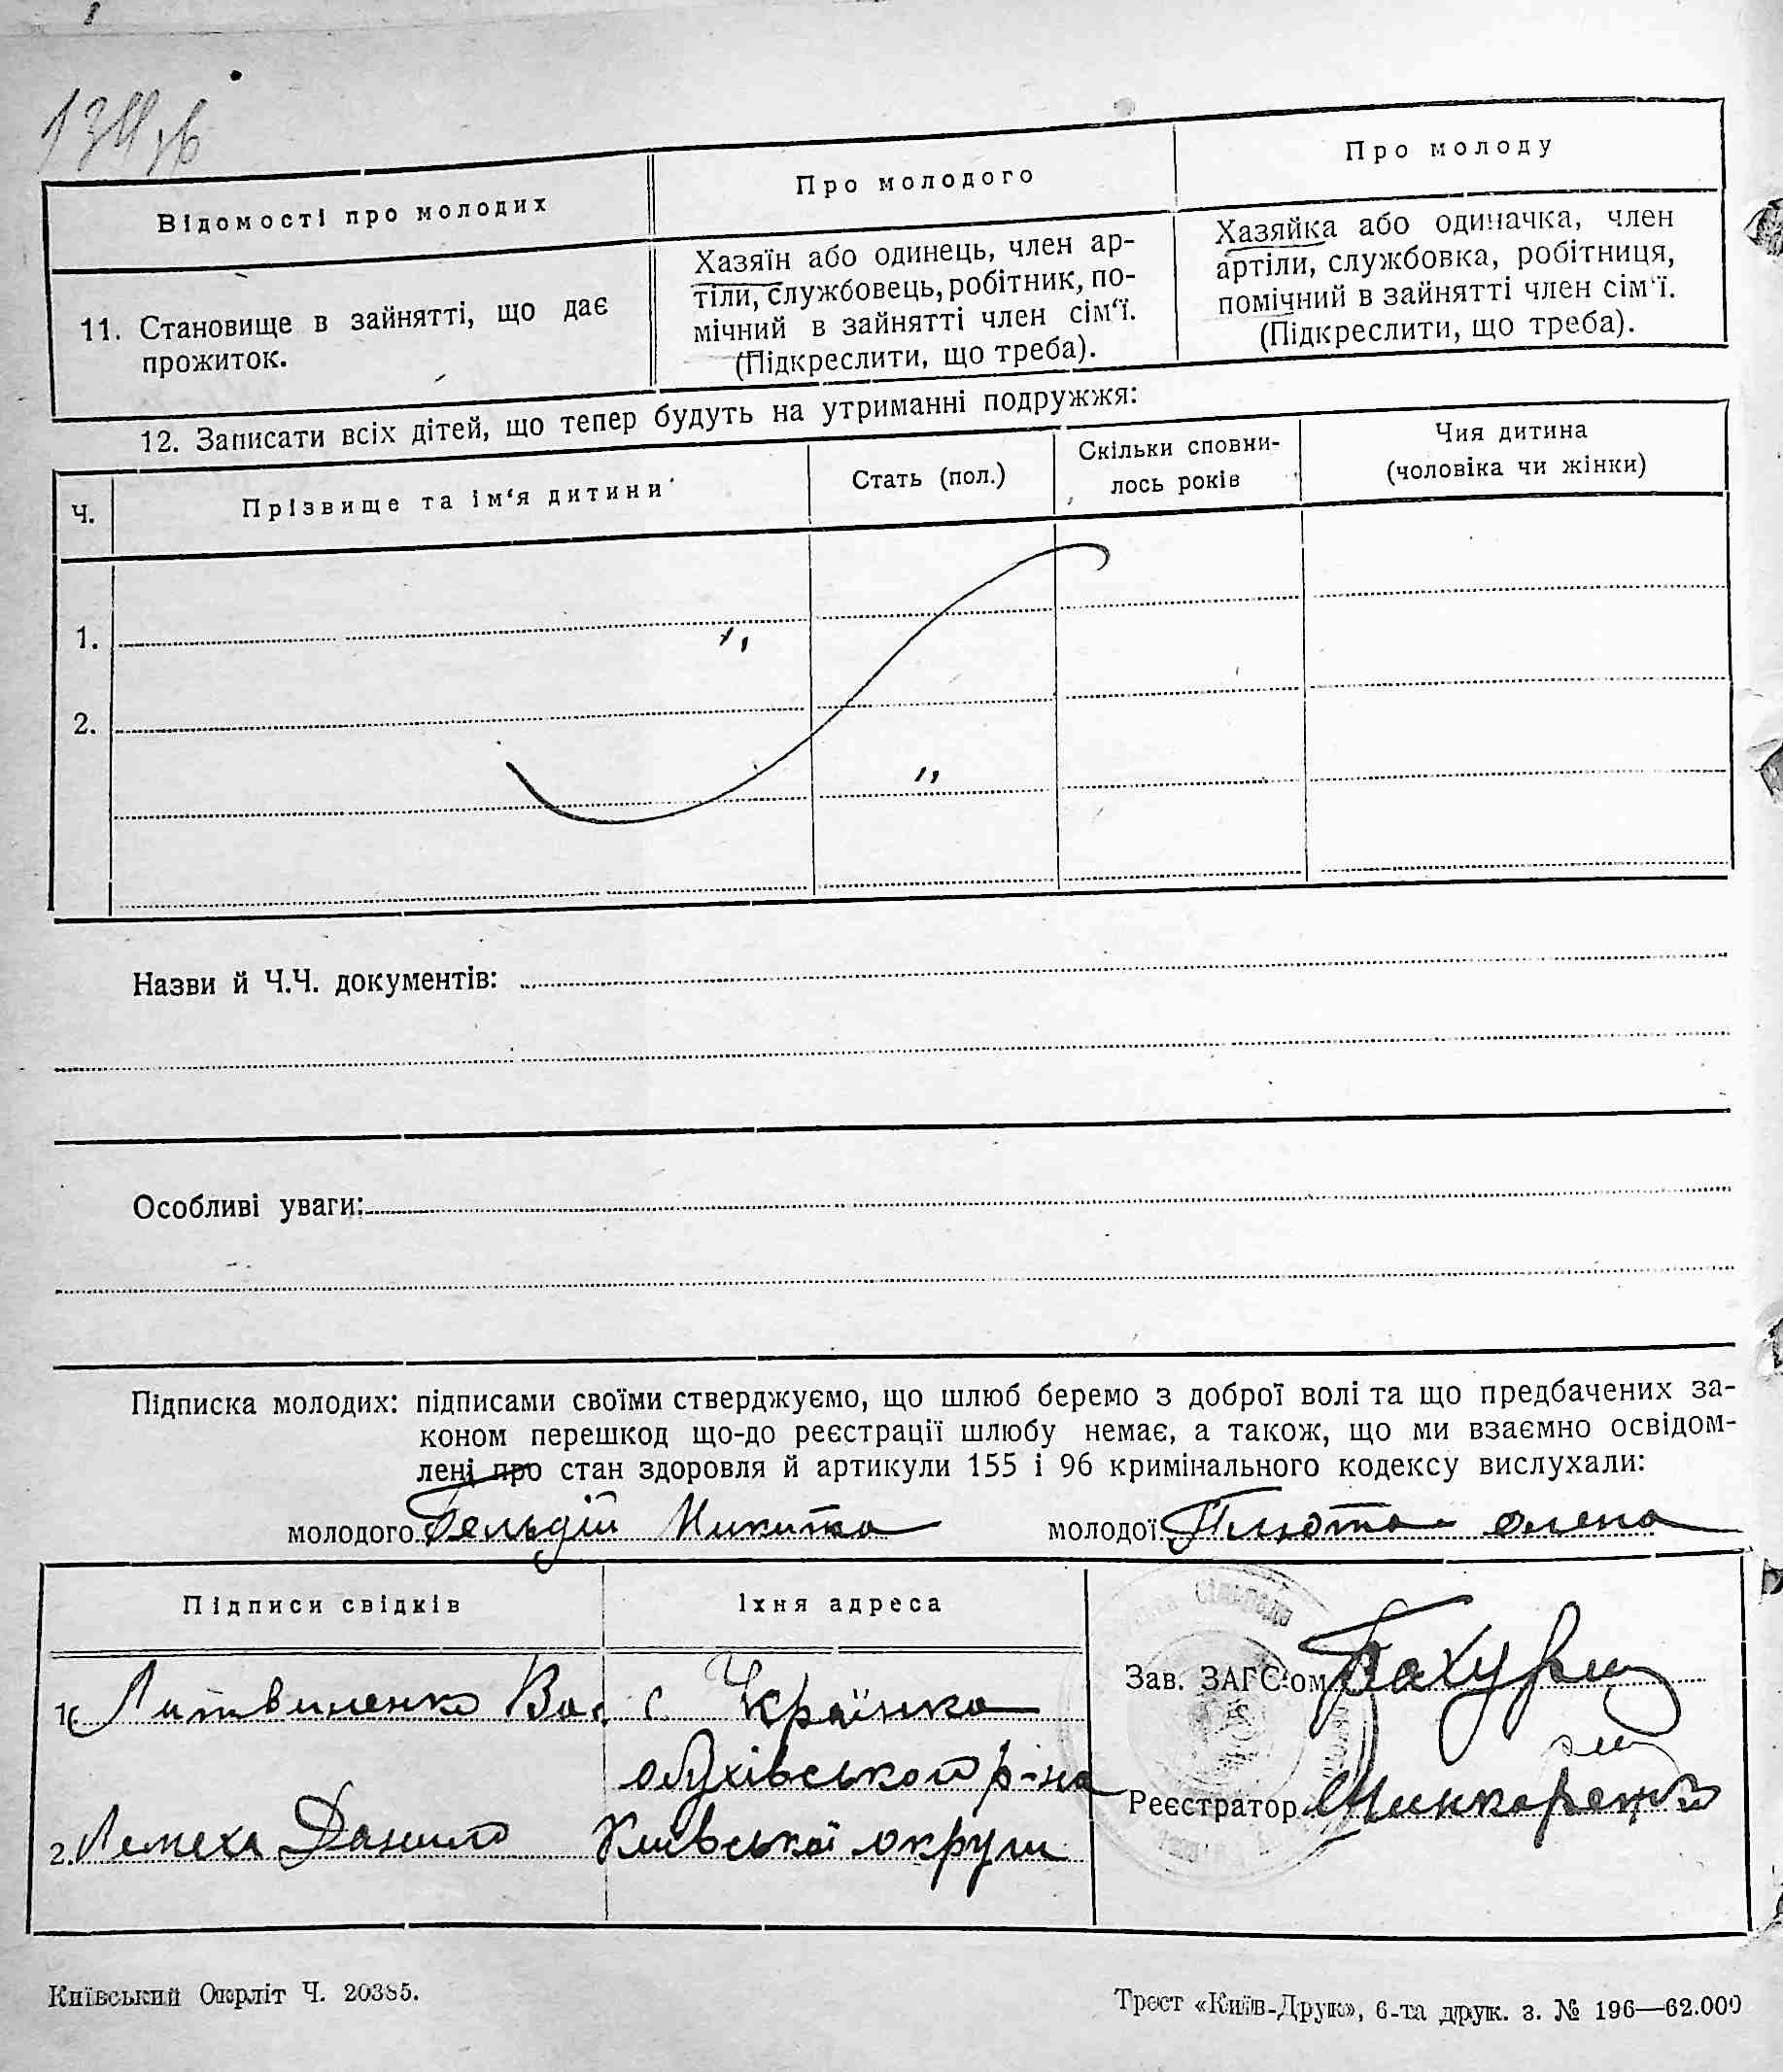 134 зв
Відомості про молодих
Про молодого
Про молоду
11. Становище в зайнятті, що дає
прожиток.
Хазяїн або одинець, член ар-
тіли, службовець, робітник, по-
мічний в зайнятті член сім‘ї.
(Підкреслити, що треба).
Хазяйка або одиначка, член
артіли, службовка, робітниця,
помічний в зайнятті член сім‘ї.
(Підкреслити, що треба).
12. Записати всіх дітей, що тепер будуть на утриманні подружжя:
Ч.
Прізвище та ім‘я дитини
Стать (пол.)
Скільки сповни-
лось років
Чия дитина
(чоловіка чи жінки)
1.
2.
Назви й Ч.Ч. документів:
Особливі уваги:
Підписка молодих: підписами своїми стверджуємо, що шлюб беремо з доброї волі та що предбачених за-
коном перешкод що-до реєстрації шлюбу немає, а також, що ми взаємно освідом-
лені про стан здоровля й артикули 155 і 96 кримінального кодексу вислухали:
молодого Бельдій Микита молодої Плюта олена
Підписи свідків
Їхня адреса
1. Литвиненко Вас. с. Українка
обухівського р-на
2. Лемеха Данило Київської округи
Зав. ЗАГС‘ом
Реєстратор
Київський Окрліт Ч. 20385.
Трест «Київ-Друк», 6-та друк. з. № 196—62.000